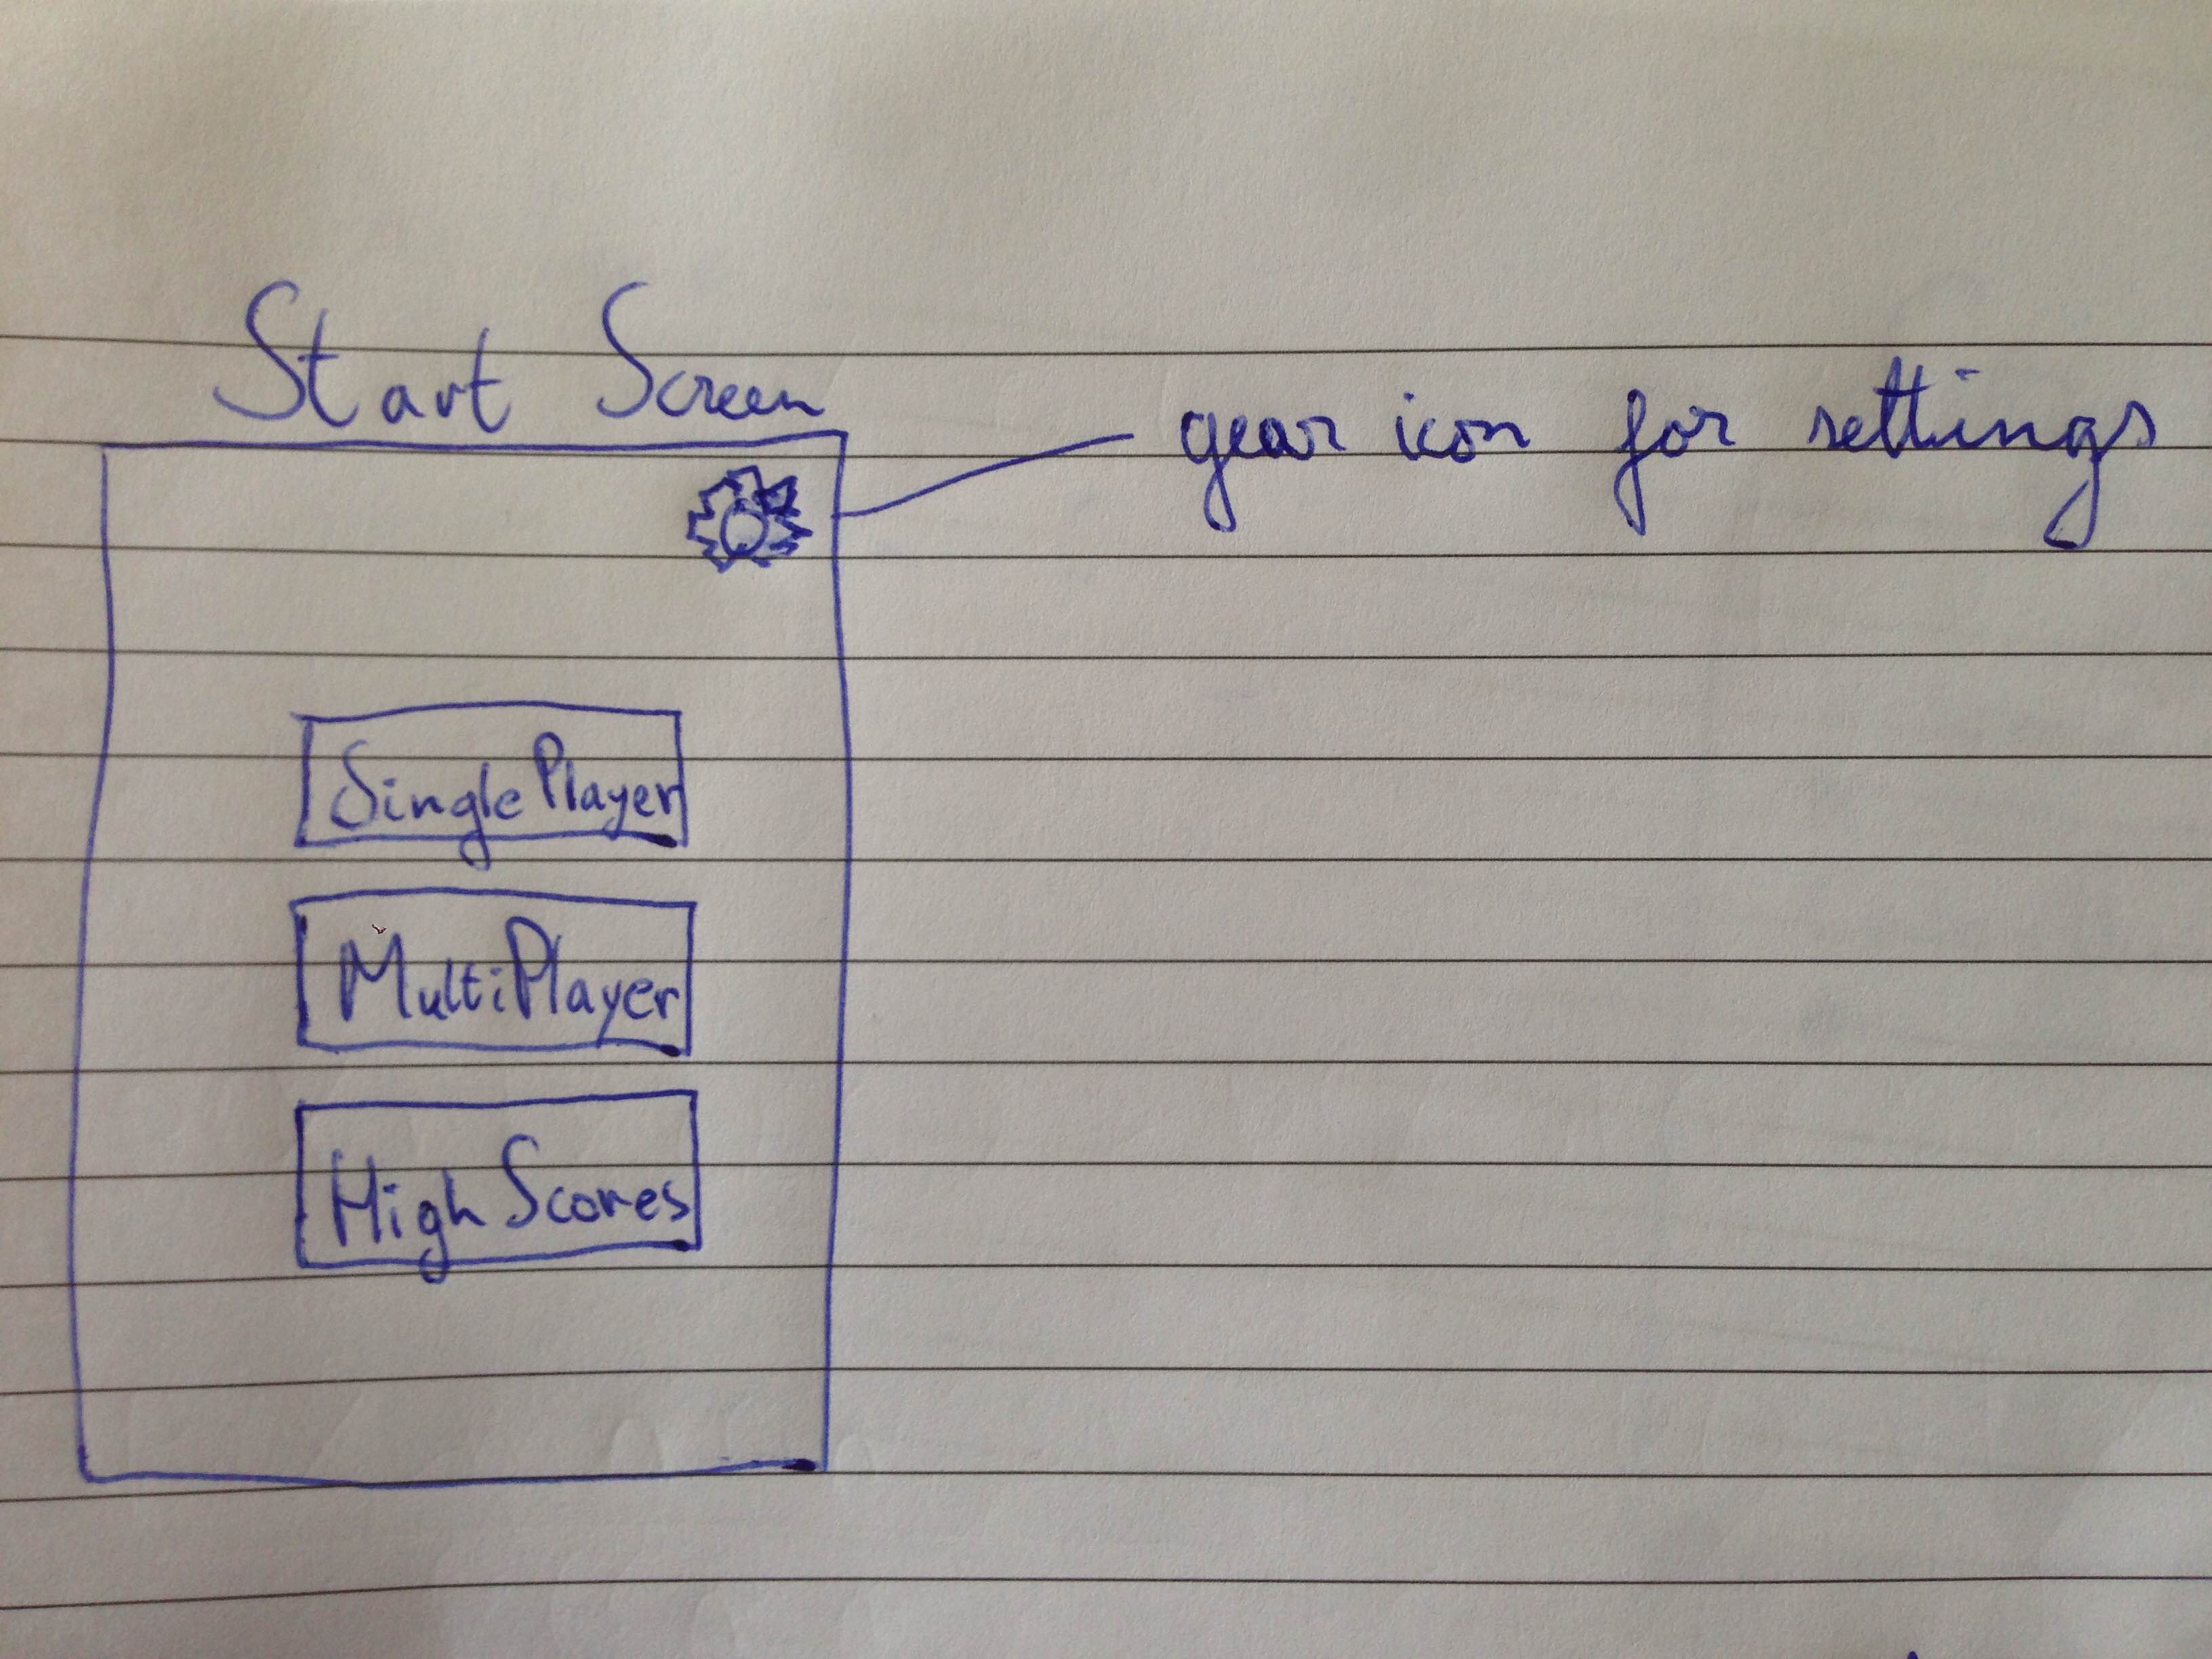 Start Screen
gear icon for settings
Single Player
MultiPlayer
High Scores